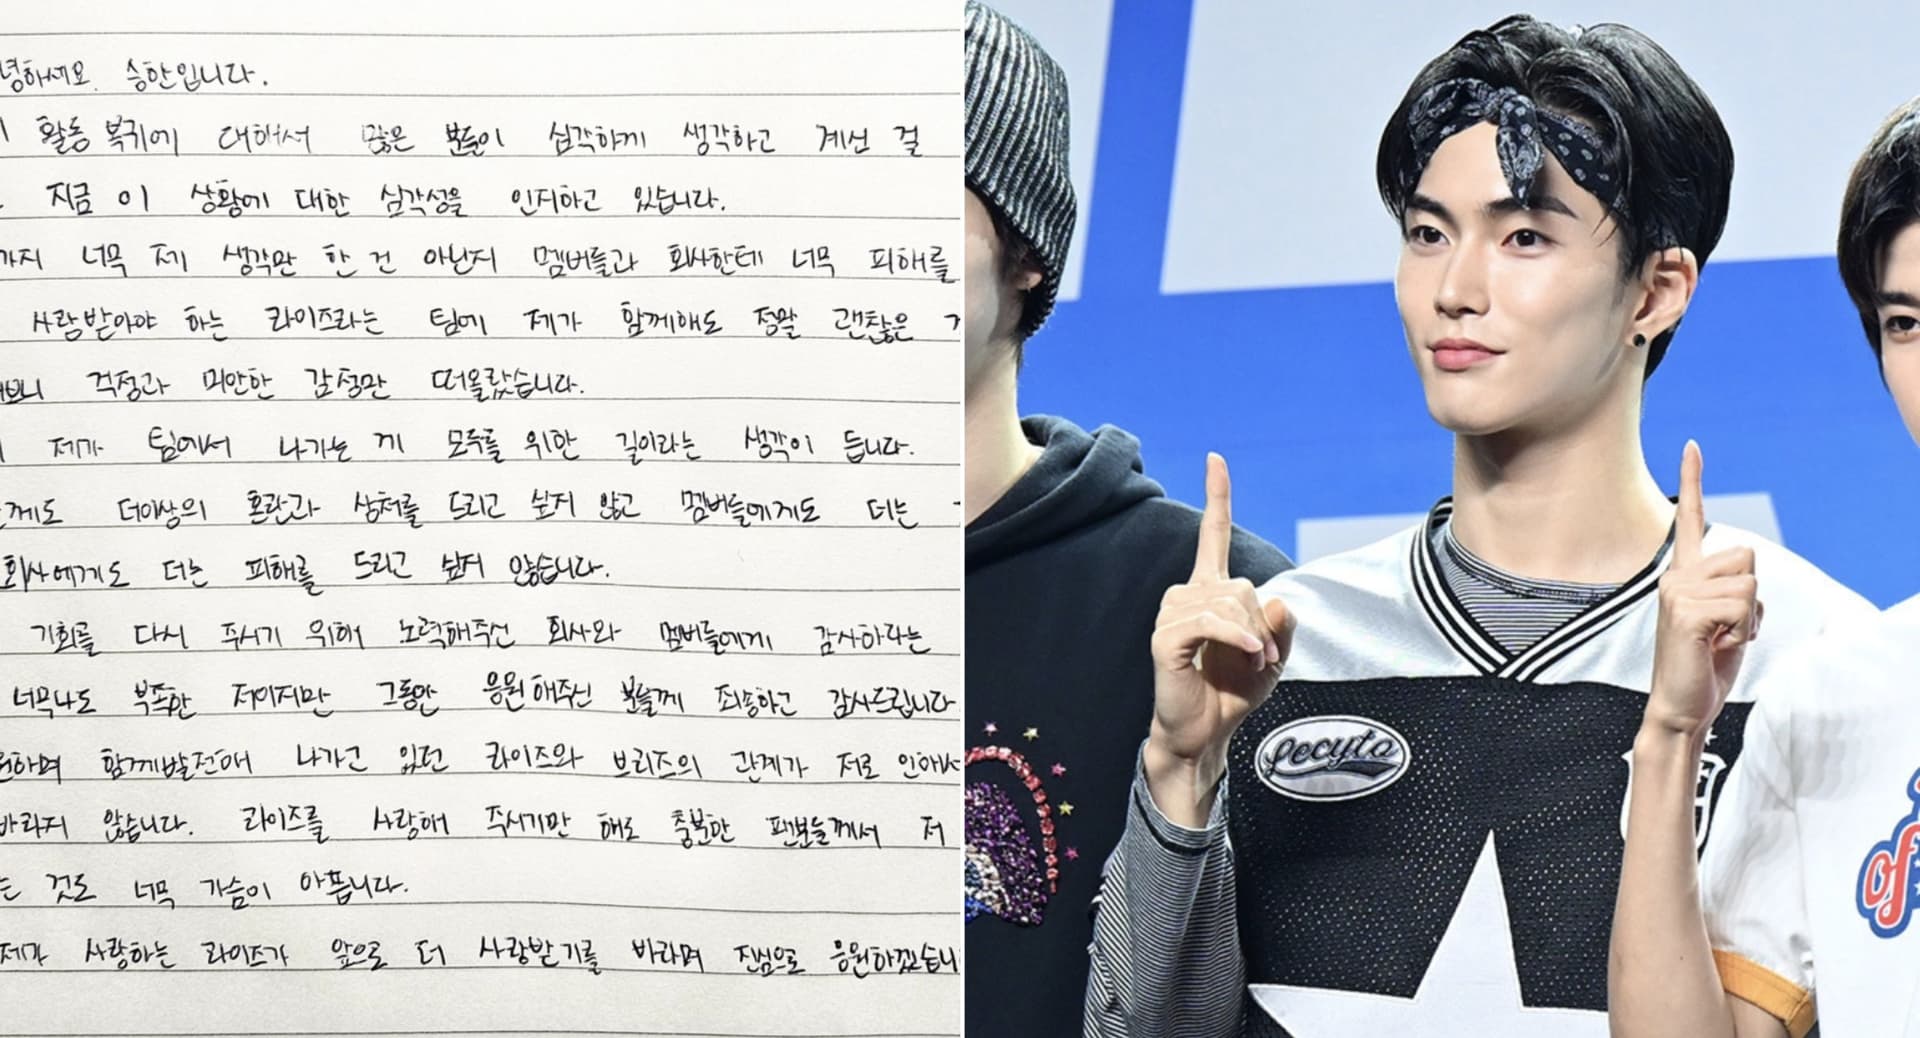 녕하세요. 승한입니다.
활동 복귀에 대해서 많은 분들이 심각하게 생각하고 계신 걸
지금 이 상황에 대한 심각성을 인지하고 있습니다.
까지 너무 제 생각만 한 건 아닌지 멤버들과 회사한테 너무 피해를
사랑받아야 하는 라이즈라는 팀에 제가 함께해도 정말 괜찮은
해보니 걱정과 미안한 감정만 떠올랐습니다.
제가 팀에서 나가는 게 모두를 위한 길이라는 생각이 듭니다.
께도 더이상의 혼란과 상처를 드리고 싶지 않고 멤버들에게도 더는
회사에게도 더는 피해를 드리고 싶지 않습니다.
기회를 다시 주시기 위해 노력해주신 회사와 멤버들에게 감사하다는
너무나도 부족한 저이지만 그동안 응원해주신 분들께 죄송하고 감사드립니다
원하며 함께발전해 나가고 있던 라이즈와 브리즈의 관계가 저로 인해서
바라지 않습니다. 라이즈를 사랑해 주시기만 해도 충분한 팬분들께서 저
는 것도 너무 가슴이 아픕니다.
제가 사랑하는 라이즈가 앞으로 더 사랑받기를 바라며 진심으로 응원하겠습니
Lecyto
of